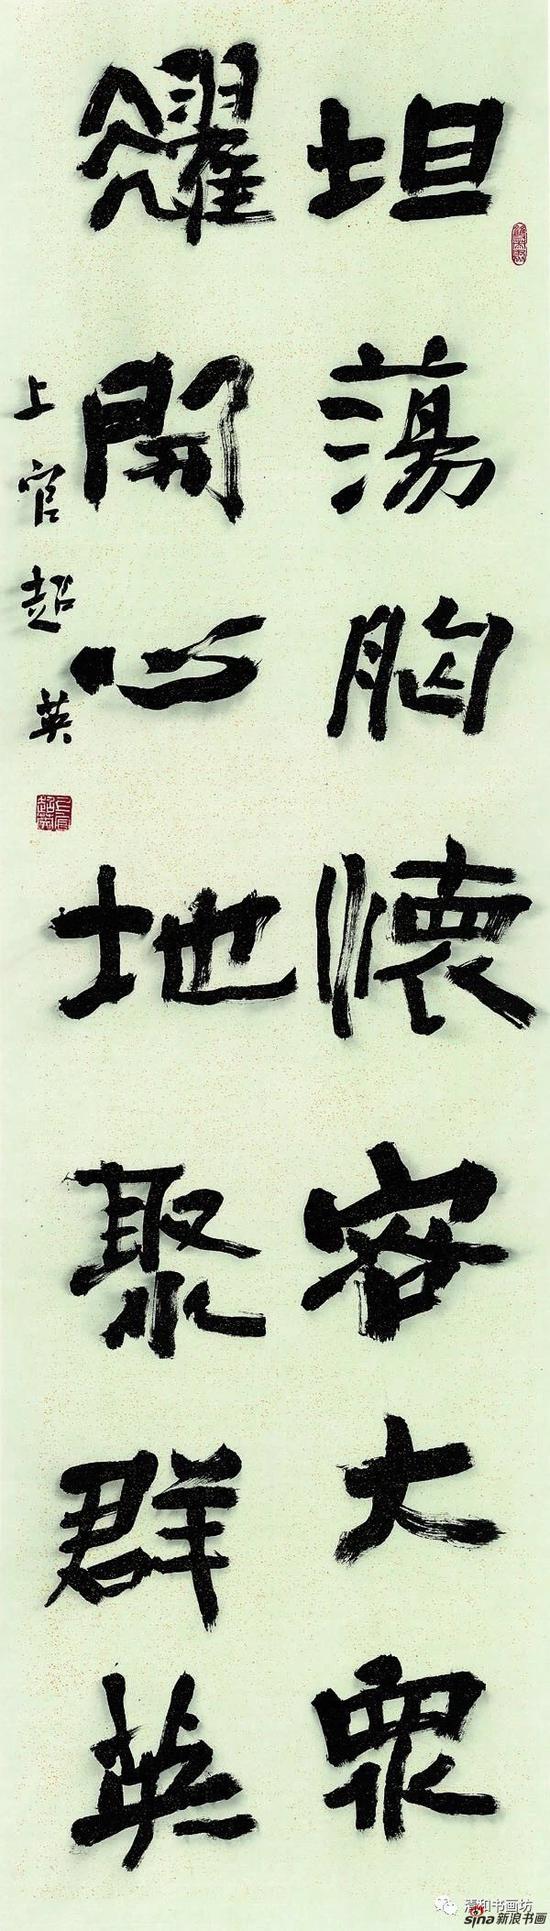 坦蕩胸懷容大眾
開心地聚群英
上官超英
清和书画坊
sina新浪书画